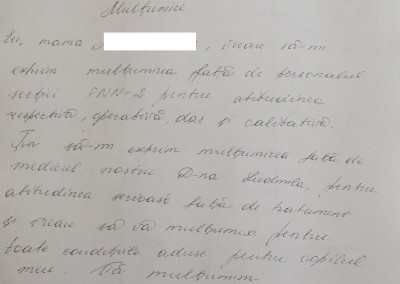 Mulțumiri
Eu, mama , vreau să-mi
exprim mulțumirea față de personalul
secției PNN-2 pentru atitudinea
respectivă, operativă, dar și calitativă.
Țin să-mi exprim mulțumirea față de
medicul nostru D-na Ludmila, pentru
atitudinea serioasă față de tratament
și vreau să vă mulțumesc pentru
toate condițiile aduse pentru copilul
meu. Vă mulțumim